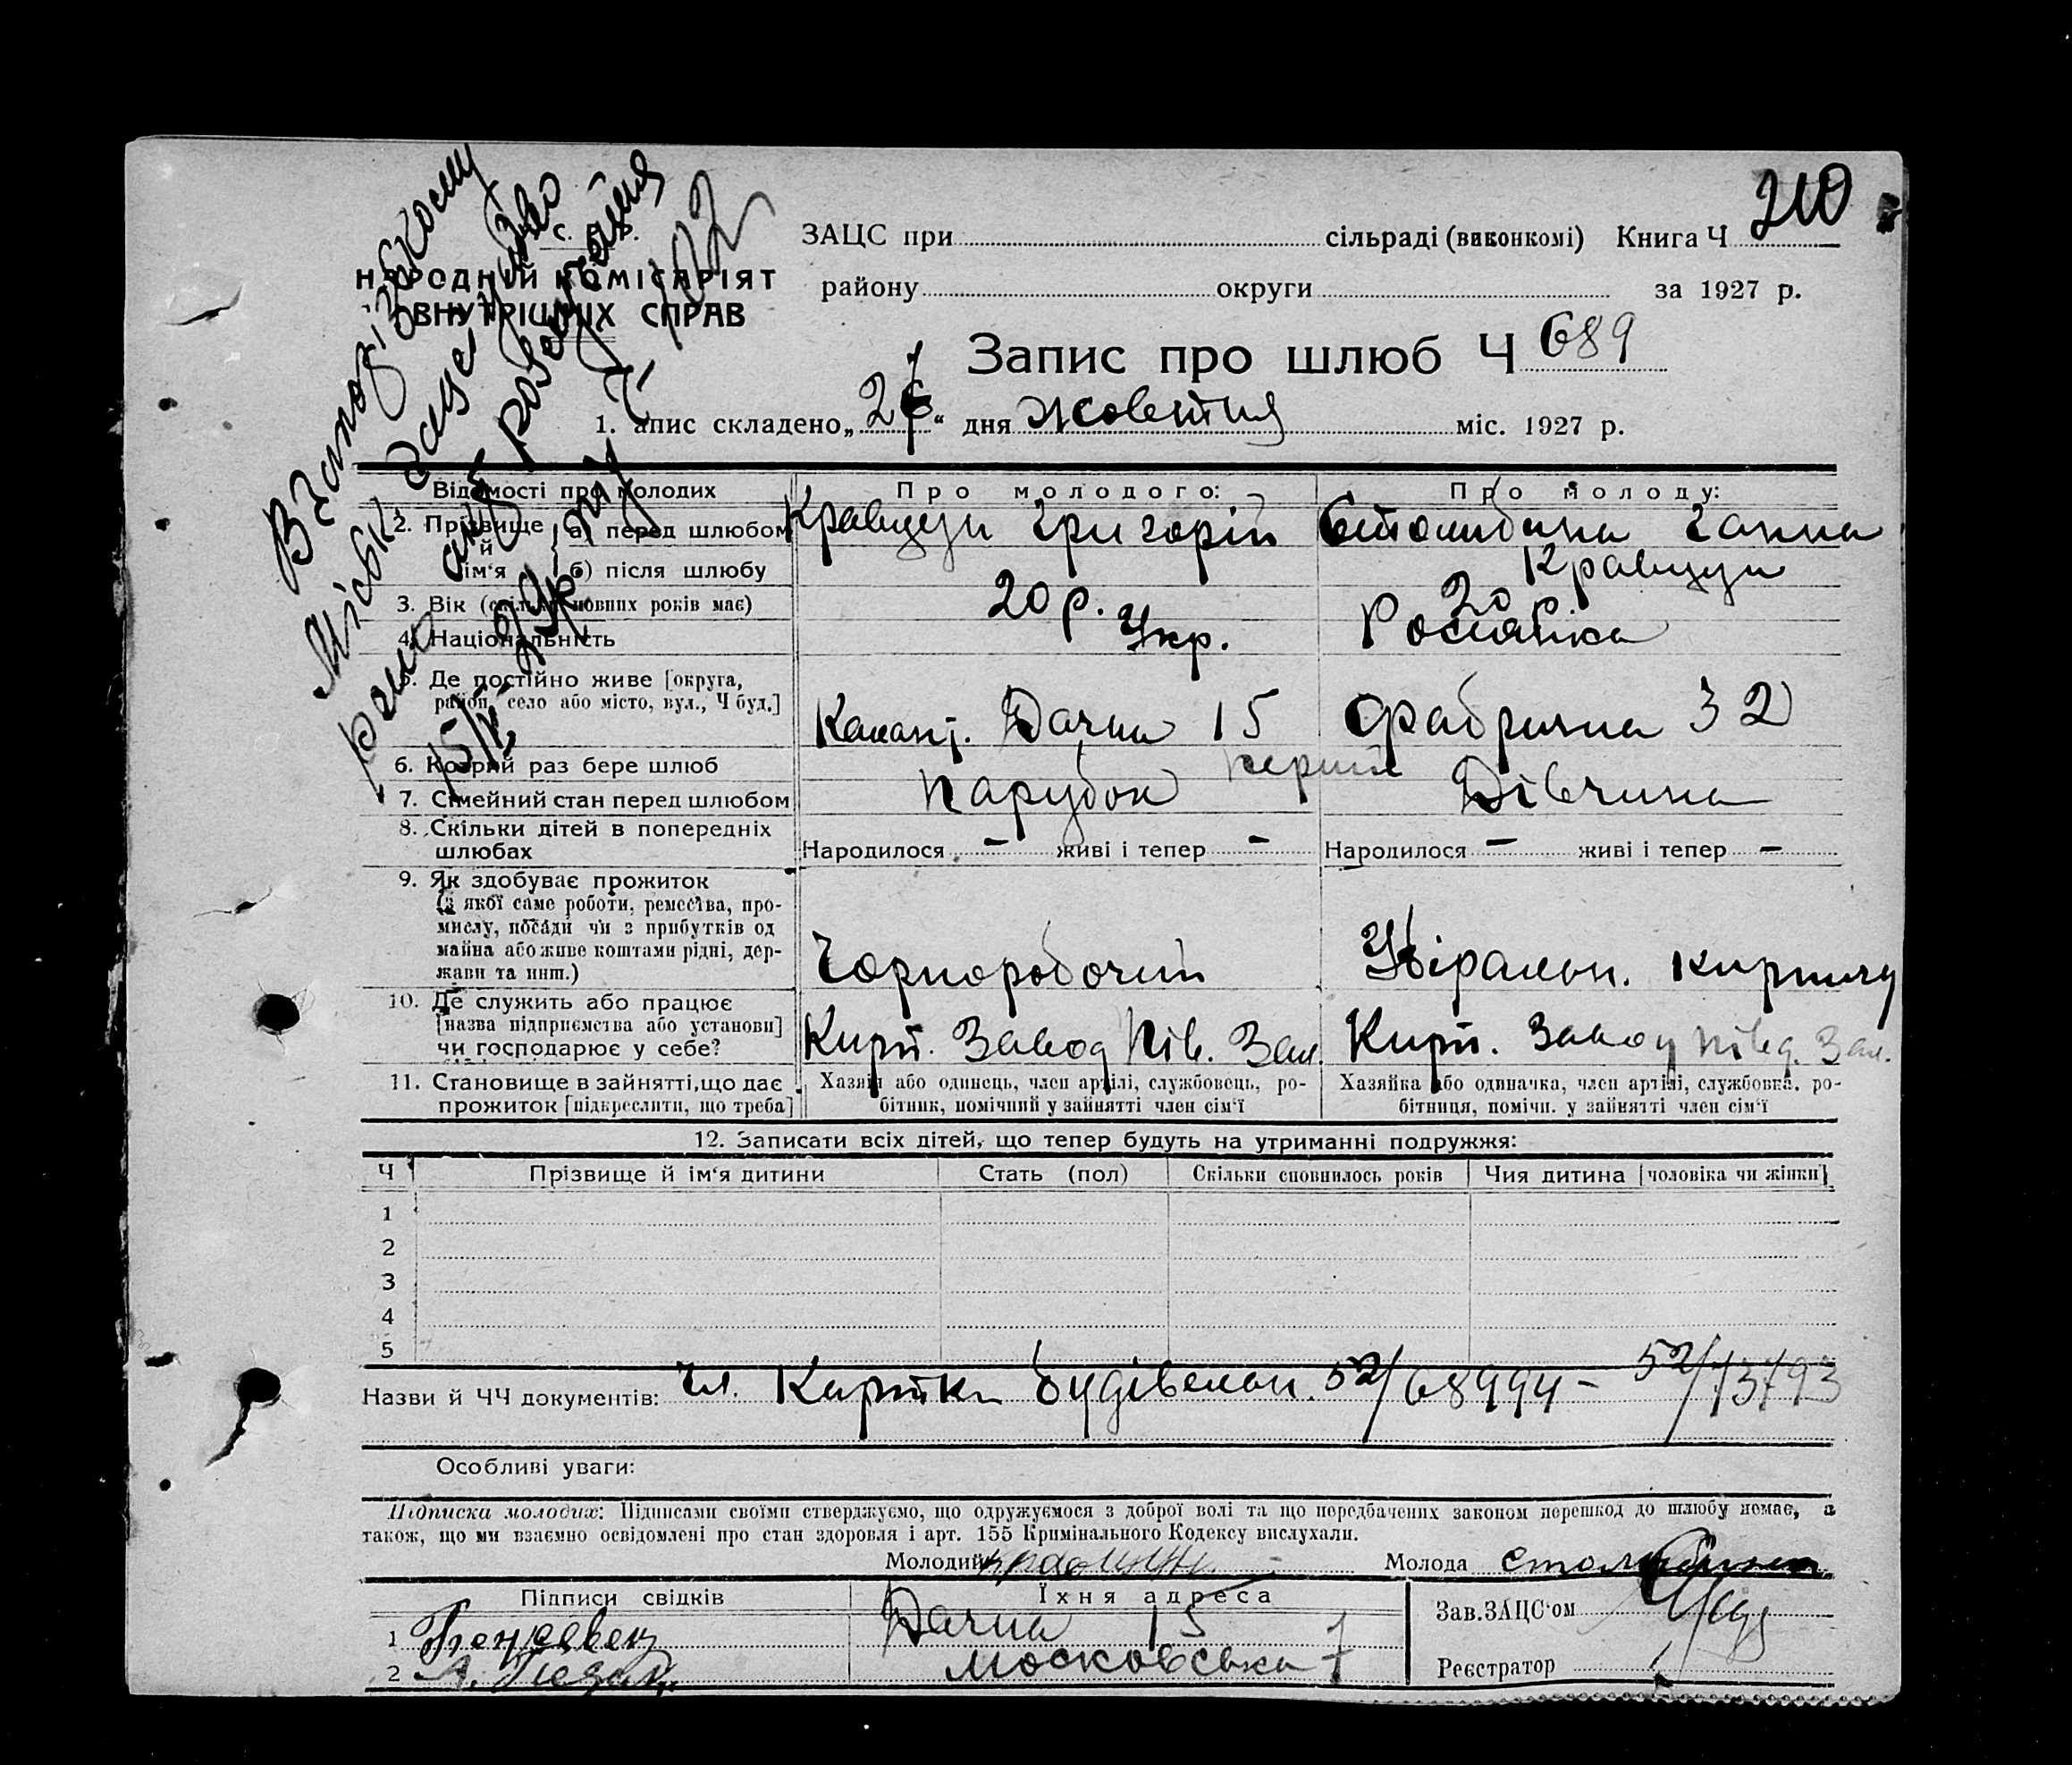 210
ЗАЦС при сільраді (виконкомі) Книга Ч
НАРОДНІЙ КОМІСАРІЯТ
ВНУТРІШНІХ СПРАВ
району округи за 1927 р.
Запис про шлюб Ч 689
1. Запис складено „27“ дня жовтня міс. 1927 р.
Відомості про молодих
Про молодого:
Про молоду:
2. Прізвище й ім‘я
а) перед шлюбом
Кравцун Григорій
Ганна
б) після шлюбу
Кравцун
3. Вік (скільки повних років має)
20 р.
20 р.
4. Національність
Укр.
Росіянка
5. Де постійно живе [округа, район, село або місто, вул., Ч буд.]
Дачна 15
Фабрична 32
6. Котрий раз бере шлюб
перший
7. Сімейний стан перед шлюбом
Парубок
Дівчина
8. Скільки дітей в попередніх шлюбах
Народилося – живі і тепер –
Народилося – живі і тепер –
9. Як здобуває прожиток
(з якої саме роботи, ремества, промислу, посади чи з прибутків од майна або живе коштами рідні, держави та инш.)
Чорноробочий
10. Де служить або працює
[назва підприємства або установи]
чи господарює у себе?
Кирп. Завод Пів. Зал.
Кирп. Завод Півд. Зал.
11. Становище в зайнятті, що дає прожиток [підкреслити, що треба]
Хазяїн або одинець, член артілі, службовець, робітник, помічний у зайнятті член сім‘ї
Хазяйка або одиначка, член артілі, службовка, робітниця, помічн. у зайнятті член сім‘ї
12. Записати всіх дітей, що тепер будуть на утриманні подружжя:
Ч
Прізвище й ім‘я дитини
Стать (пол)
Скільки сповнилось років
Чия дитина [чоловіка чи жінки]
1
2
3
4
5
Назви й ЧЧ документів: Чл. Картки будівельн. 52/68994 – 52/73793
Особливі уваги:
Підписка молодих: Підписами своїми стверджуємо, що одружуємося з доброї волі та що передбачених законом перешкод до шлюбу немає, а
також, що ми взаємно освідомлені про стан здоровля і арт. 155 Кримінального Кодексу вислухали.
Молодий Молода
Підписи свідків
Їхня адреса
Зав. ЗАЦС‘ом
1 Дачна 15
2 Московська 7
Реєстратор